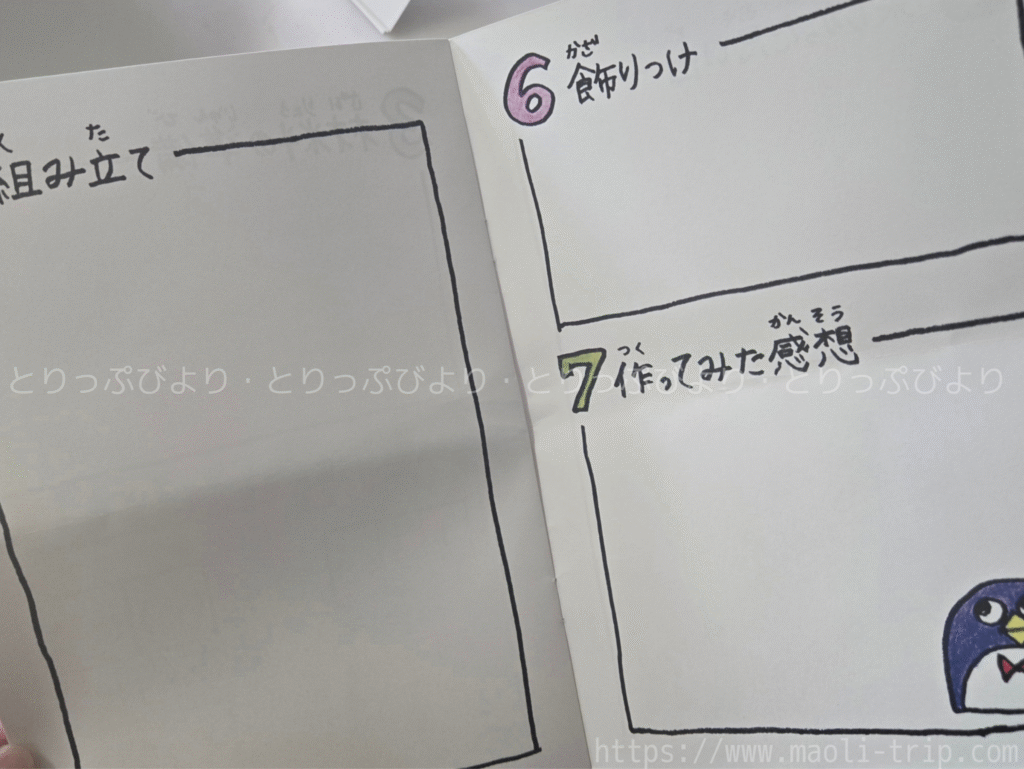 く た
組み立て
かざ
6 飾りつけ
つく かんそう
7 作ってみた感想
とりっぷびより・とりっぷびより・とりっぷびより・とりっぷびより
https://www.maoli-trip.com